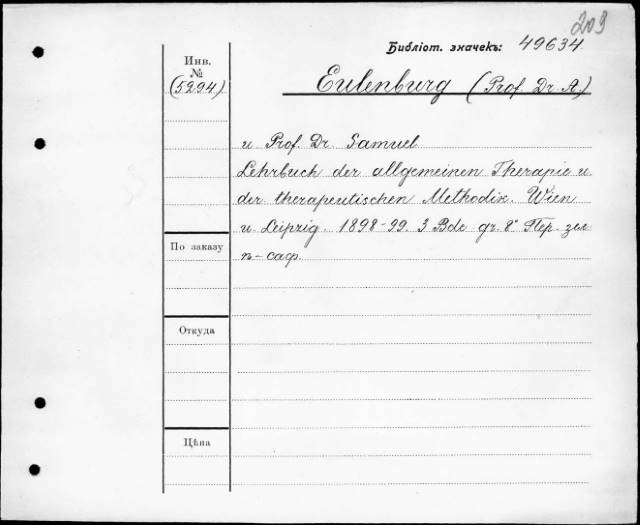 203
Библіот. значекъ: 49634
Инв.
№
(5294)
Eulenburg (Prof. Dr. A.)
u Prof. Dr. Samuel
Lehrbuch der allgemeinen Therapie u.
der therapeutischen Methodik. Wien
u. Leipzig. 1898-99. 3 Bde gr. 8° Пер. зел
п-саф.
По заказу
Откуда
Цѣна